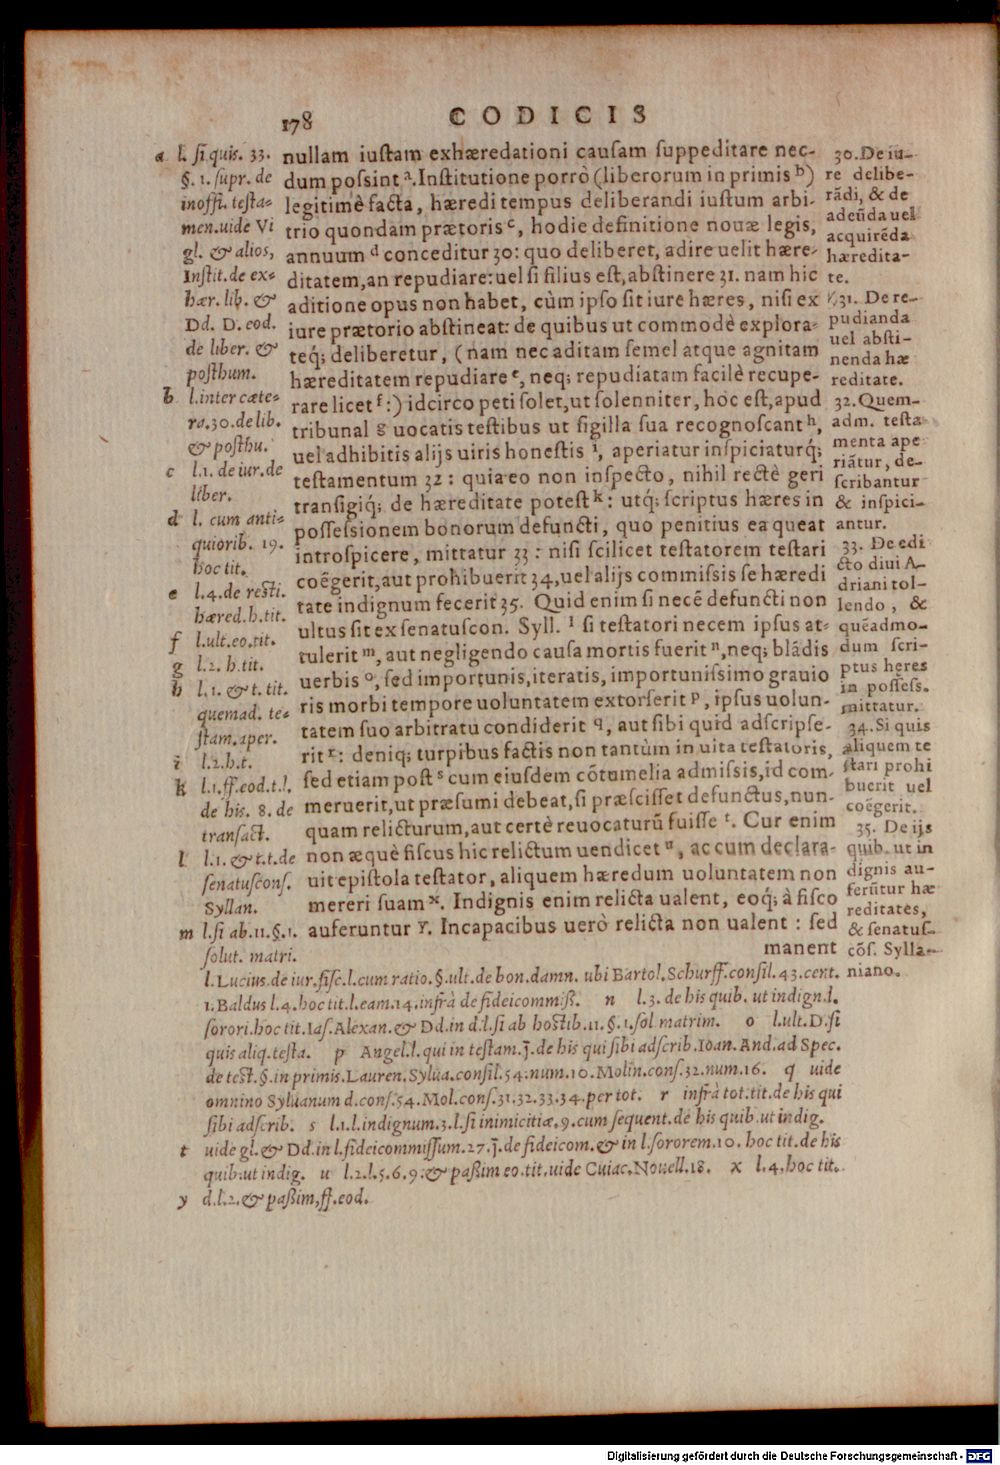 178 CODICIS
nullam iustam exhæredationi causam suppeditare nec-
dum possint ᵃ. Institutione porrò (liberorum in primis ᵇ)
legitimè facta, hæredi tempus deliberandi iustum arbi-
trio quondam prætoris ᶜ, hodie definitione nouæ legis,
annuum ᵈ conceditur 30: quo deliberet, adire uelit hære-
ditatem, an repudiare: uel si filius est, abstinere 31. nam hic
aditione opus non habet, cùm ipso sit iure hæres, nisi ex
iure prætorio abstineat: de quibus ut commodè explora-
teq́; deliberetur, (nam nec aditam semel atque agnitam
hæreditatem repudiare ᵉ, neq; repudiatam facilè recupe-
rare licet ᶠ:) idcirco peti solet, ut solenniter, hoc est, apud
tribunal g uocatis testibus ut sigilla sua recognoscant ʰ,
uel adhibitis alijs uiris honestis ⁱ, aperiatur inspiciaturq́;
testamentum 32: quia eo non inspecto, nihil rectè geri
transigiq́; de hæreditate potest ᵏ: utq́; scriptus hæres in
possessionem bonorum defuncti, quo penitius ea queat
introspicere, mittatur 33: nisi scilicet testatorem testari
coëgerit, aut prohibuerit 34, uel alijs commissis se hæredi
tate indignum fecerit 35. Quid enim si necẽ defuncti non
ultus sit ex senatuscon. Syll. ˡ si testatori necem ipsus at-
tulerit ᵐ, aut negligendo causa mortis fuerit ⁿ, neq; blãdis
uerbis ᵒ, sed importunis, iteratis, importunissimo grauio
ris morbi tempore uoluntatem extorserit ᵖ, ipsus uolun-
tatem suo arbitratu condiderit q, aut sibi quid adscripse-
rit ʳ: deniq; turpibus factis non tantùm in uita testatoris,
sed etiam post ˢ cum eiusdem cõtumelia admissis, id com-
meruerit, ut præsumi debeat, si præscisset defunctus, nun-
quam relicturum, aut certè reuocaturũ fuisse ᵗ. Cur enim
non æquè fiscus hic relictum uendicet ᵘ, ac cum declara-
uit epistola testator, aliquem hæredum uoluntatem non
mereri suam ˣ. Indignis enim relicta ualent, eoq́; à fisco
auferuntur ʸ. Incapacibus uerò relicta non ualent: sed
manent
a l. si quis. 33.
§. 1. supr. de
inoffi. testa=
men. uide Vi
gl. & alios,
Instit. de ex=
hær. lib. &
Dd. D. eod.
de liber. &
posthum.
b l. inter cæte=
ra. 30. de lib.
& posthu.
c l.1. de iur. de
liber.
d l. cum anti=
quiorib. 19.
hoc tit.
e l.4. de resti.
hæred. h. tit.
f l. ult. eo. tit.
g l.2. h. tit.
h l.1. & t. tit.
quemad. te=
stam. aper.
i l.2. h. t.
k l.1. ff. eod. t. l.
de his. 8. de
transact.
l l.1. & t. t. de
senatuscons.
Syllan.
m l. si ab. 11. §. 1.
solut. matri.
l. Lucius. de iur. fisc. l. cum ratio. §. ult. de bon. damn. ubi Bartol. Schurff. consil. 43. cent.
1. Baldus l.4. hoc tit. l. eam. 14. infrà de fideicommiss. n l.3. de his quib. ut indign. l.
sorori. hoc tit. Ias. Alexan. & Dd. in d. l. si ab hostib. 11. §. 1. sol matrim. o l. ult. D. si
quis aliq. testa. p Angel. l. qui in testam. J. de his qui sibi adscrib. Ioan. And. ad Spec.
de test. §. in primis. Lauren. Sylua. consil. 54. num. 10. Molin. cons. 32. num. 16. q uide
omnino Syluanum d. cons. 54. Mol. cons. 31. 32. 33. 34. per tot. r infrà tot. tit. de his qui
sibi adscrib. s l.1. l. indignum. 3. l. si inimicitiæ. 9. cum sequent. de his quib. ut indig.
t uide gl. & Dd. in l. fideicommissum. 27. J. de fideicom. & in l. sororem. 10. hoc tit. de his
quib. ut indig. u l.2. l.5. 6. 9: & passim eo. tit. uide Cuiac. Nouell. 18. x l.4. hoc tit.
y d. l.2. & passim, ff. eod.
30. De iu-
re delibe-
rãdi, & de
adeũda uel
acquirẽda
hæredita-
te.
31. De re-
pudianda
uel absti-
nenda hæ
reditate.
32. Quem-
adm. testa
menta ape
riãtur, de-
scribantur
& inspici-
antur.
33. De edi
cto diui A-
driani tol-
lendo, &
quẽadmo-
dum scri-
ptus heres
in possess.
mittatur.
34. Si quis
aliquem te
stari prohi
buerit uel
coëgerit.
35. De ijs
quib. ut in
dignis au-
ferũtur hæ
reditates,
& senatus-
cõs. Sylla-
niano.
Digitalisierung gefördert durch die Deutsche Forschungsgemeinschaft - DFG